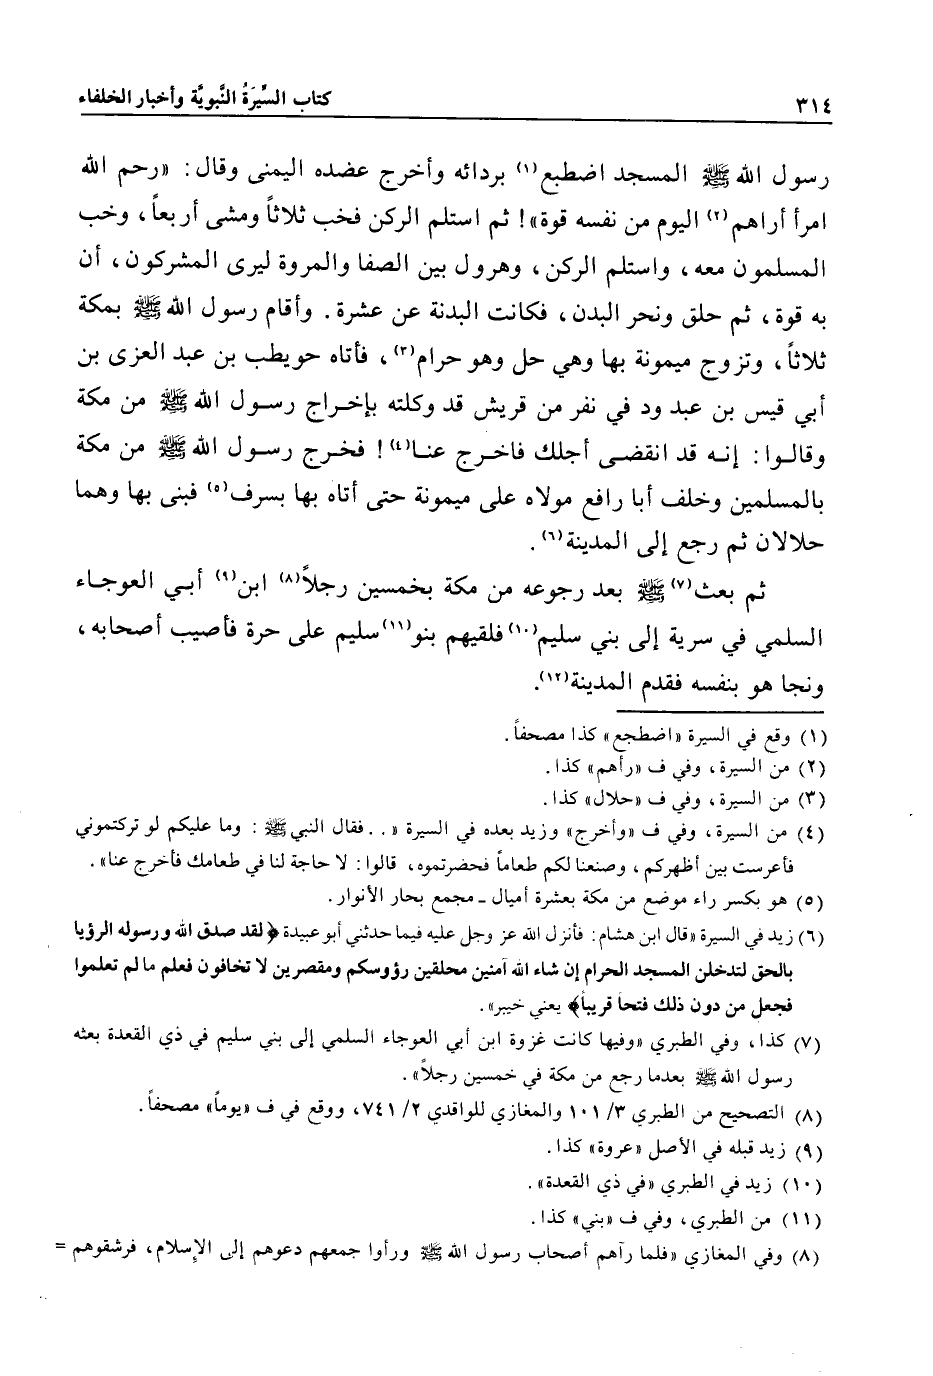 ٣١٤
كتاب السِّيرَةُ النَّبويَّة وأخبار الخلفاء
رسول الله ﷺ المسجد اضطبع(١) بردائه وأخرج عضده اليمنى وقال: «رحم الله
امرأ أراهم(٢) اليوم من نفسه قوة»! ثم استلم الركن فخب ثلاثاً ومشى أربعاً، وخب
المسلمون معه، واستلم الركن، وهرول بين الصفا والمروة ليرى المشركون، أن
به قوة، ثم حلق ونحر البدن، فكانت البدنة عن عشرة. وأقام رسول الله ﷺ بمكة
ثلاثاً، وتزوج ميمونة بها وهي حل وهو حرام(٣)، فأتاه حويطب بن عبد العزى بن
أبي قيس بن عبد ود في نفر من قريش قد وكلته بإخراج رسول الله ﷺ من مكة
وقالوا: إنه قد انقضى أجلك فاخرج عنا(٤)! فخرج رسول الله ﷺ من مكة
بالمسلمين وخلف أبا رافع مولاه على ميمونة حتى أتاه بها بسرف(٥) فبنى بها وهما
حلالان ثم رجع إلى المدينة(٦).
ثم بعث(٧) ﷺ بعد رجوعه من مكة بخمسين رجلاً(٨) ابن(٩) أبي العوجاء
السلمي في سرية إلى بني سليم(١٠) فلقيهم بنو(١١) سليم على حرة فأصيب أصحابه،
ونجا هو بنفسه فقدم المدينة(١٢).
(١) وقع في السيرة «اضطجع» كذا مصحفاً.
(٢) من السيرة، وفي ف «رأهم» كذا.
(٣) من السيرة، وفي ف «حلال» كذا.
(٤) من السيرة، وفي ف «وأخرج» وزيد بعده في السيرة «.. فقال النبي ﷺ: وما عليكم لو تركتموني
فأعرست بين أظهركم، وصنعنا لكم طعاماً فحضرتموه، قالوا: لا حاجة لنا في طعامك فأخرج عنا».
(٥) هو بكسر راء موضع من مكة بعشرة أميال ـ مجمع بحار الأنوار.
(٦) زيد في السيرة «قال ابن هشام: فأنزل الله عز وجل عليه فيما حدثني أبو عبيدة ﴿لقد صدق الله ورسوله الرؤيا
بالحق لتدخلن المسجد الحرام إن شاء الله آمنين محلقين رؤوسكم ومقصرين لا تخافون فعلم ما لم تعلموا
فجعل من دون ذلك فتحاً قريباً﴾ يعني خيبر».
(٧) كذا، وفي الطبري «وفيها كانت غزوة ابن أبي العوجاء السلمي إلى بني سليم في ذي القعدة بعثه
رسول الله ﷺ بعدما رجع من مكة في خمسين رجلاً».
(٨) التصحيح من الطبري ٣/ ١٠١ والمغازي للواقدي ٢/ ٧٤١، ووقع في ف «يوماً» مصحفاً.
(٩) زيد قبله في الأصل «عروة» كذا.
(١٠) زيد في الطبري «في ذي القعدة».
(١١) من الطبري، وفي ف «بني» كذا.
(٨) وفي المغازي «فلما رآهم أصحاب رسول الله ﷺ ورأوا جمعهم دعوهم إلى الإسلام، فرشقوهم =